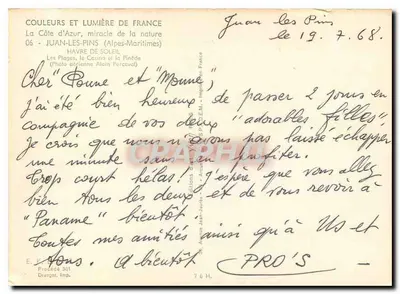 COULEURS ET LUMIÈRE DE FRANCE
La Côte d'Azur, miracle de la nature
06 - JUAN-LES-PINS (Alpes-Maritimes)
HAVRE DE SOLEIL
Les Plages, le Casino et la Pinède
(Photo aérienne Alain Perceval)
Juan les Pins
le 19.7.68.
Cher "Poune" et "Moune",
j'ai été bien heureux de passer 2 jours en
compagnie de vos deux "adorables filles"
Je crois que nous n'avons pas laissé échapper
une minute sans en profiter.
Trop court hélas! J'espère que vous allez
bien tous les deux et de vous revoir à
"Paname" bientôt.
Toutes mes amitiés ainsi qu'à Us et
tous. A bientôt
PRO'S
Procédé 301
Draeger, Imp.